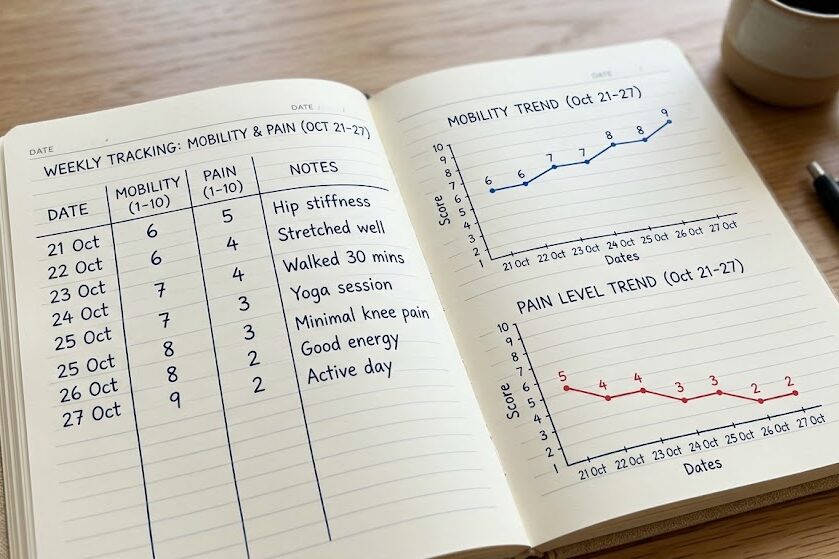 DATE
DATE
WEEKLY TRACKING: MOBILITY & PAIN (OCT 21-27)
DATE MOBILITY (1-10) PAIN (1-10) NOTES
21 Oct 6 5 Hip stiffness
22 Oct 6 4 Stretched well
23 Oct
24 Oct 7 4 Walked 30 mins
25 Oct 7 3 Yoga session
25 Oct 8 3 Minimal knee pain
26 Oct 8 2 Good energy
27 Oct 9 2 Active day
DATE
MOBILITY TREND (Oct 21-27)
10
9
8
7
6
5
4
3
2
1
Score
6 6 7 7 8 8 9
21 Oct 22 Oct 23 Oct 24 Oct 25 Oct 26 Oct 27 Oct
Dates
PAIN LEVEL TREND (Oct 21-27)
10
9
8
7
6
5
4
3
2
1
Score
5 4 4 3 3 2 2
21 Oct 22 Oct 23 Oct 24 Oct 25 Oct 26 Oct 27 Oct
Dates